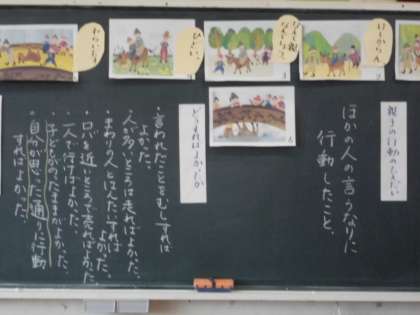 けしからん
ひどい
親子の行動のもんだい
ほかの人の言うなりに
行動したこと。
どうすればよかったか
・言われたことをむしすれば
よかった。
・人が多いところは走ればよかった。
・まわり人とはんたいすれば
よかった。
・ロバを近いところで売ればよかった
・一人で行けばよかった。
・子どものったままがよかった。
・自分が思った通り行動
すればよかった。